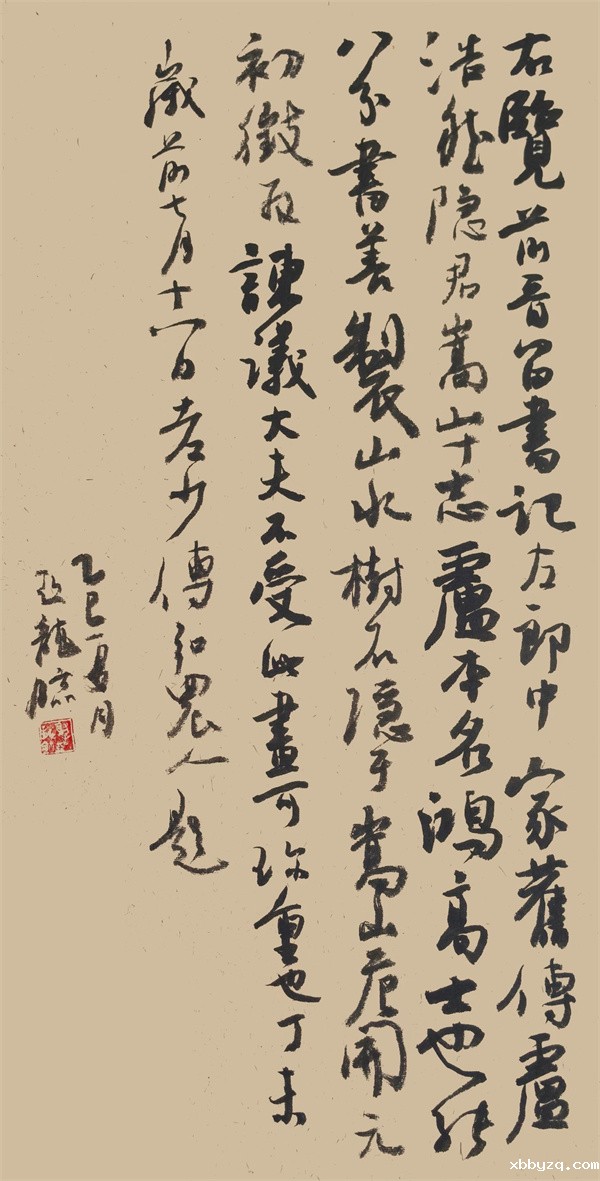 右覽前晉昌書記左郎中家舊傳盧
浩然隐居嵩山十志盧本名鴻高士也能
八分書善製山水樹石隱于嵩山唐開元
初徵拜諫議大夫不受此畫可珍重也丁未
歲前七月十八日老少傅弘農人題
乙巳月
龍臨
xbbyzq.com